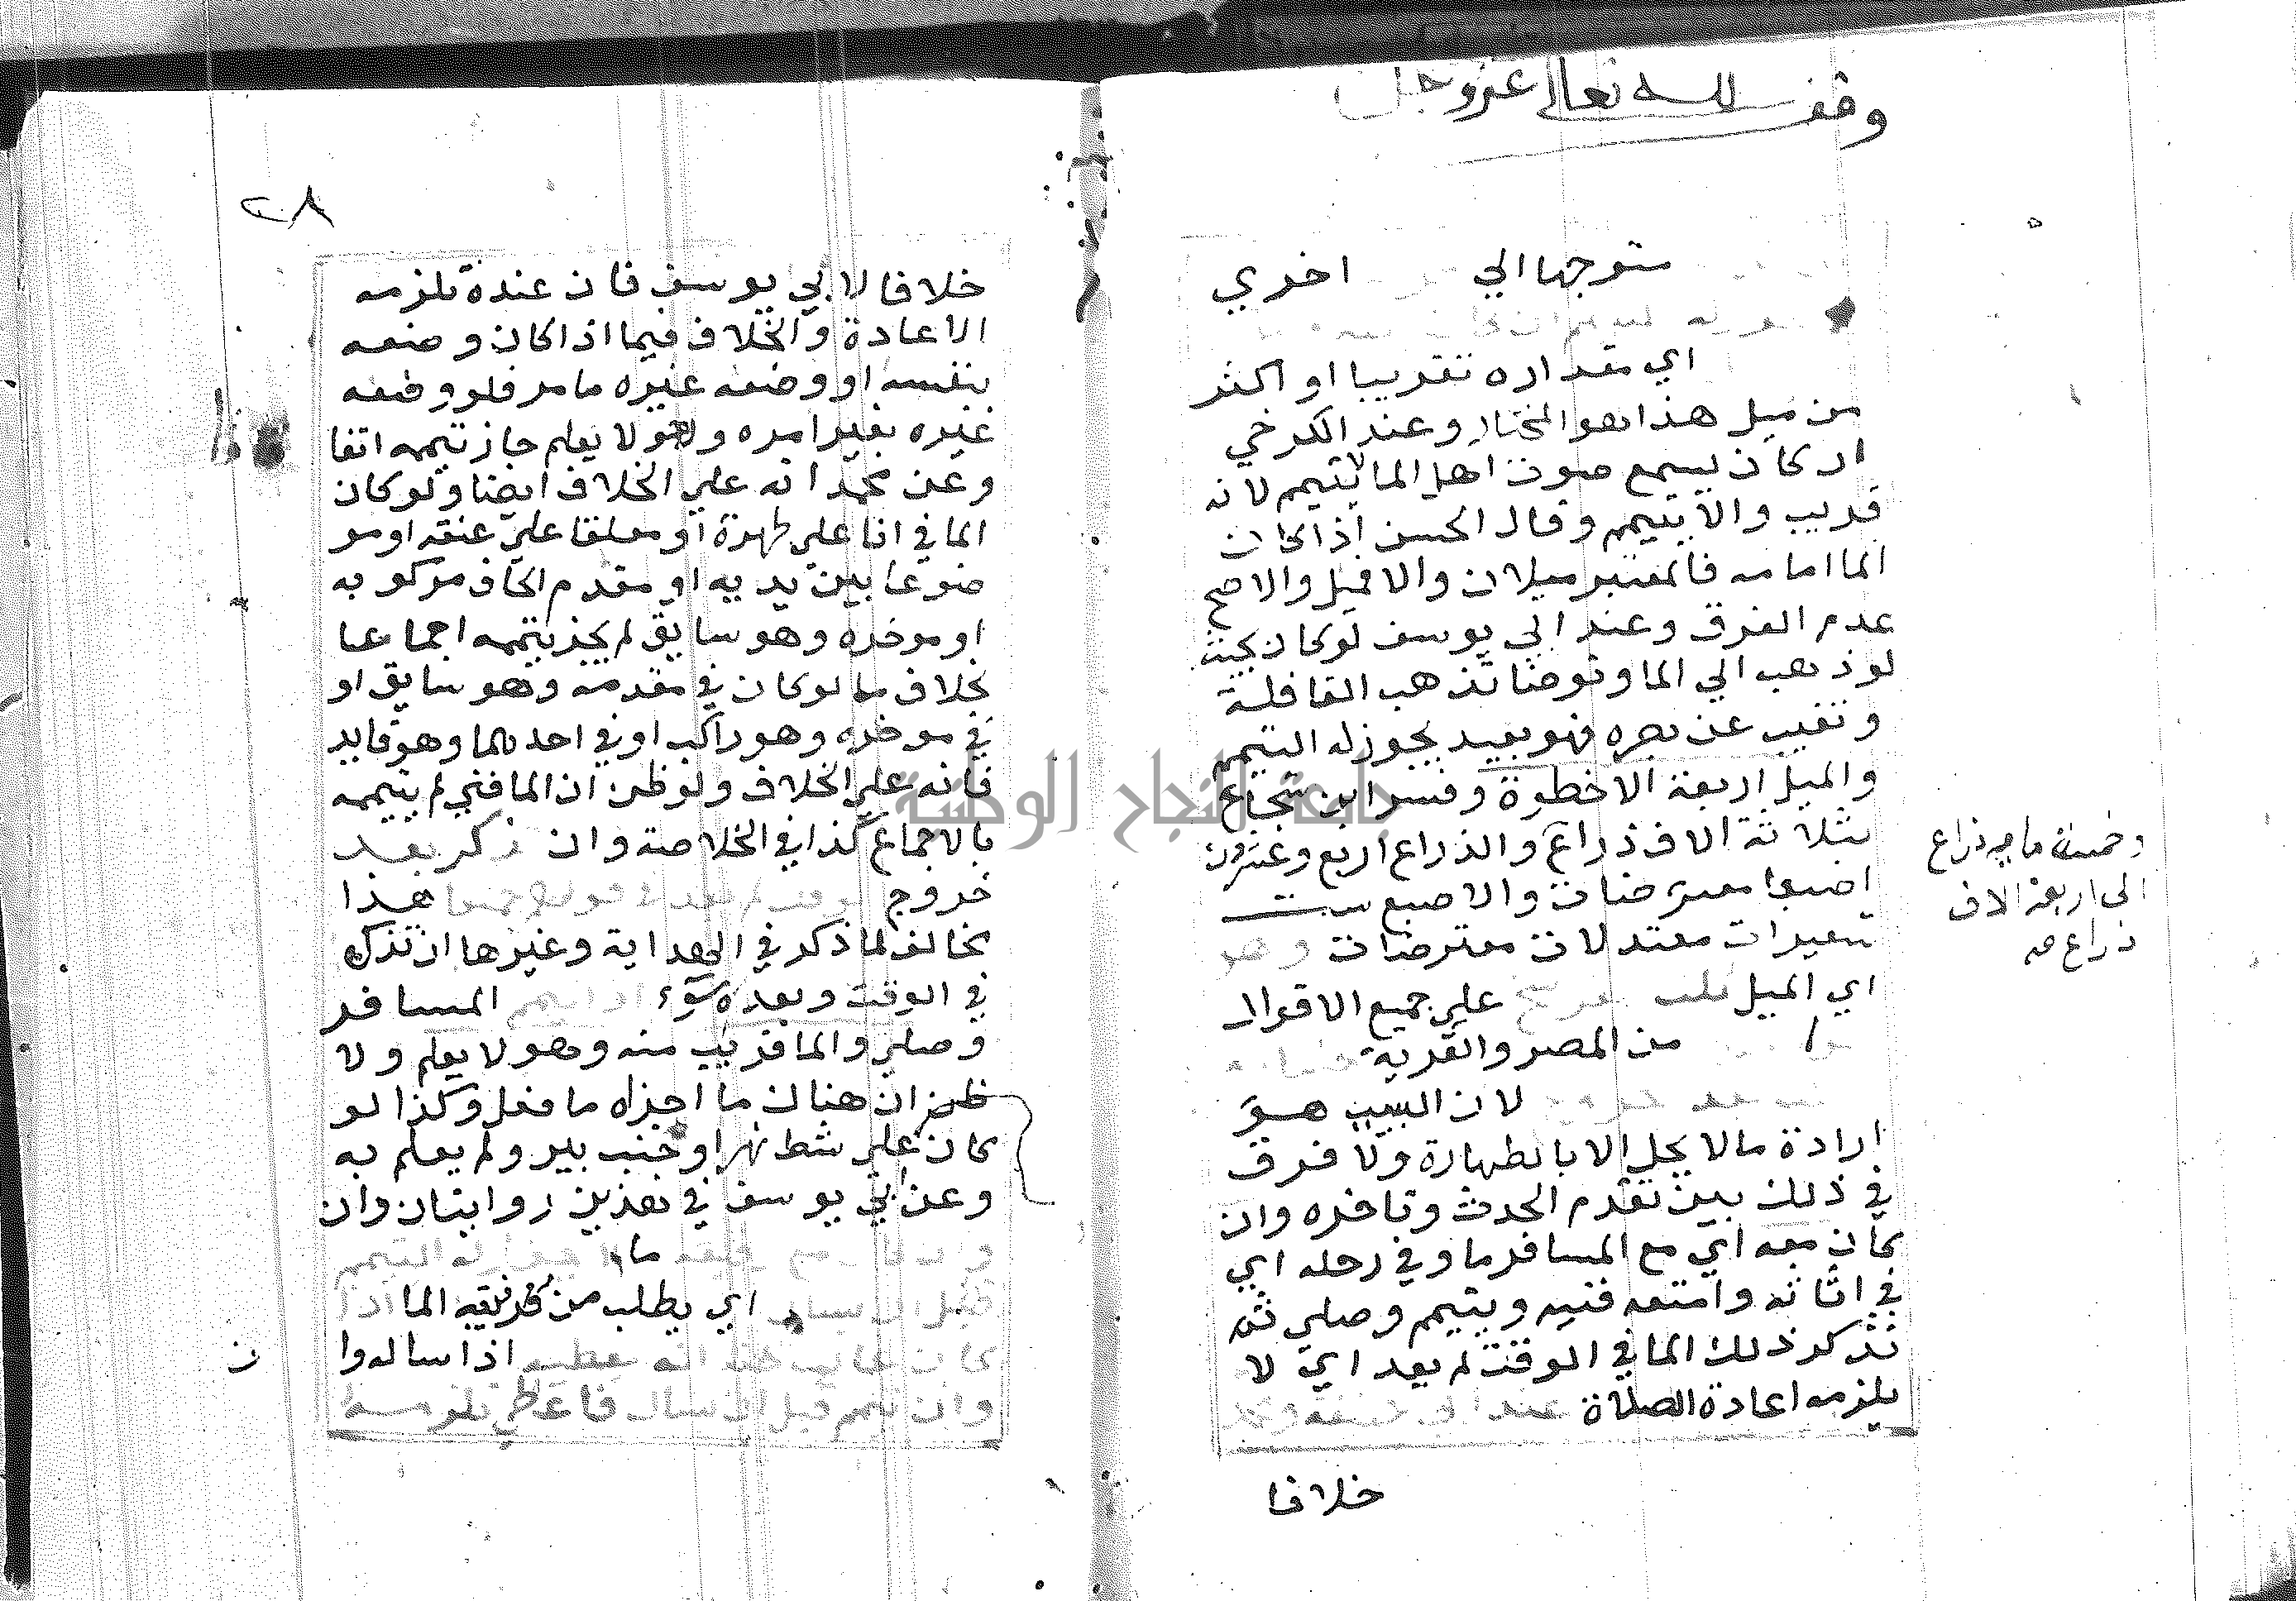 وقف لله تعالى عز وجل
متوجها الي اخري
اي مقداره تقريبا او اكثر
من ميل هذا هو المختار وعند الكرخي
ان كان يسمع صوت اهل الما لايتيمم لانه
قريب والا يتيمم وقال الحسن اذا كان
الما امامه فالمعتبر ميلان والا فميل والاصح
عدم الفرق وعند ابي يوسف لو كان بحيث
لو ذهب الي الما وتوضا تذهب القافلة
وتغيب عن بصره فهو بعيد يجوز له التيمم
والميل اربعة الاف خطوة وفسر ابن شجاع
بثلاثة الاف ذراع والذراع اربع وعشرون
اصبعا معترضات والاصبع ست
شعيرات معتدلات معترضات وهو
اي الميل ثلث فرسخ علي جميع الاقوال
من المصر والقرية
لان السبب هو
ارادة مالا يحل الا بالطهارة ولا فرق
في ذلك بين تقدم الحدث وتاخره وان
كان معه اي مع المسافر ما وفي رحله اي
في اثاثه وامتعه فنسيه ويتيمم وصلي ثم
تذكر ذلك الما في الوقت لم يعد اي لا
يلزمه اعادة الصلاة
خلافا
وخمسة ماية ذراع
الى اربعة الاف
ذراع صه
٢٨
خلافا لابي يوسف فان عنده تلزمه
الاعادة والخلاف فيما اذا كان وضعه
بنفسه او وضعه غيره بامره فلو وضعه
غيره بغير امره وهو لا يعلم جاز تيممه اتفا
وعن محمد انه علي الخلاف ايضا ولو كان
الما في انا علي ظهره او معلقا علي عنقه او مو
ضوعا بين يديه او مقدم اكاف مركوبه
او موخره وهو سايق لم يجز تيممه اجماعا
بخلاف ما لو كان في مقدمه وهو سايق او
في موخره وهو راكب او في احدهما وهو قايد
فانه علي الخلاف ولو ظن ان الما فني لم يتيممه
بالاجماع كذا في الخلاصة وان ذكر بعد
خروج الوقت لم يعد في قولهم جميعا هذا
يخالف لما ذكر في الهداية وغيرها ان تذكره
في الوقت وبعده سوء اذا تيمم المسافر
وصلي والما قريب منه وهو لا يعلم ولا
ظهر ان هناك ما اجزاه ما فعل وكذا لو
كان علي شط نهر او جنب بير ولم يعلم به
وعن ابي يوسف في هذين روايتان وان
ما
قبل ان يسال اي يطلب من رفيقه الما اذا
كان غالب ظنه انه يعطيه اذا ساله وا
وان تيمم قبل ان يسال فاعطي تلزمه
ن